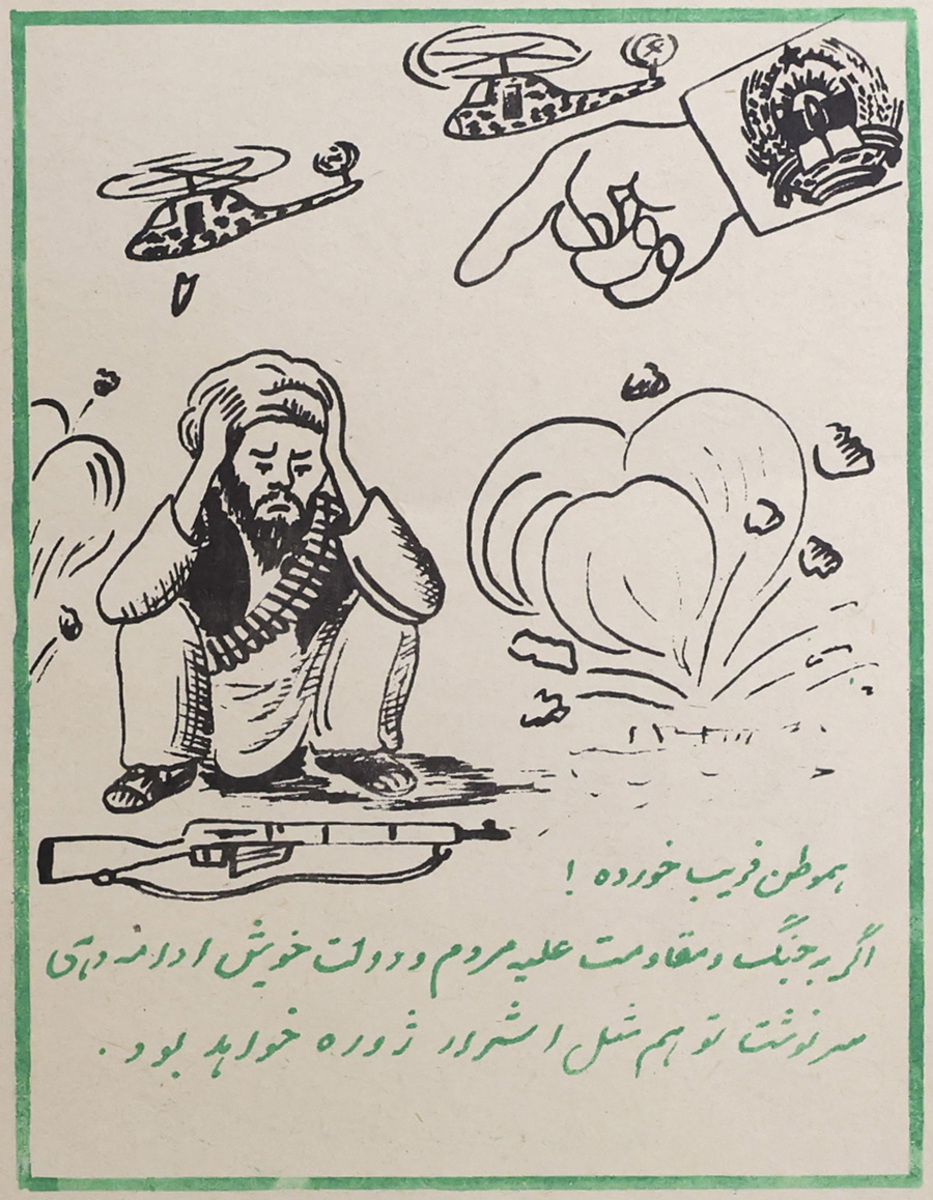 هموطن فریب خورده !
اگر به جنگ و مقاومت علیه مردم و دولت خویش ادامه دهی
سرنوشت تو هم مثل اشرار ژوره خواهد بود .